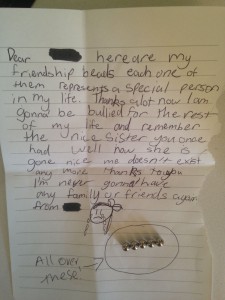 Dear here are my
friendship beads each one of
them represents a special person
in my life. Thanks alot now I am
gonna be bullied for the rest
of my life and remember
the nice sister you once
had well now she is
gone nice me doesn't exist
any more thanks to you
I'm never gonna have
any family or friends again
from:
All over
these!